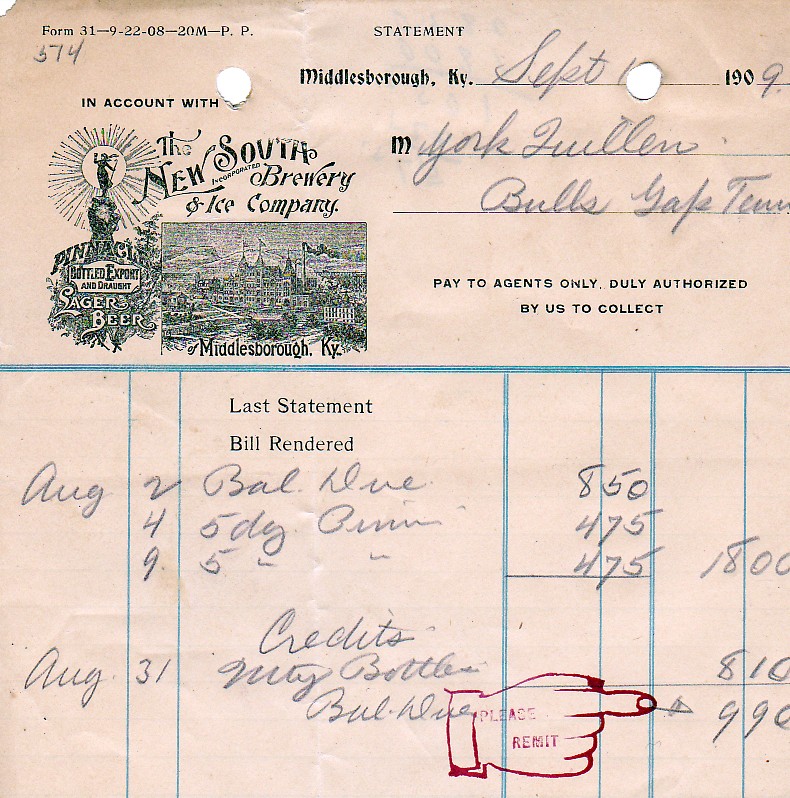 Form 31—9-22-08—20M—P. P.
STATEMENT
574
Middlesborough, Ky. Sept 1 1909.
IN ACCOUNT WITH
The New South Brewery
INCORPORATED
& Ice Company.
of Middlesborough, Ky.
PINNACLE
BOTTLED EXPORT
AND DRAUGHT
LAGER
BEER
M York Quillen
Bulls Gap Tenn
PAY TO AGENTS ONLY, DULY AUTHORIZED
BY US TO COLLECT
Last Statement
Bill Rendered
Aug 2 Bal. Due 8 50
4 5 dz 4 75
9 5 " " 4 75 18 00
Credits
Aug. 31 Bottles 8 10
Bal. Due 9 90
PLEASE
REMIT